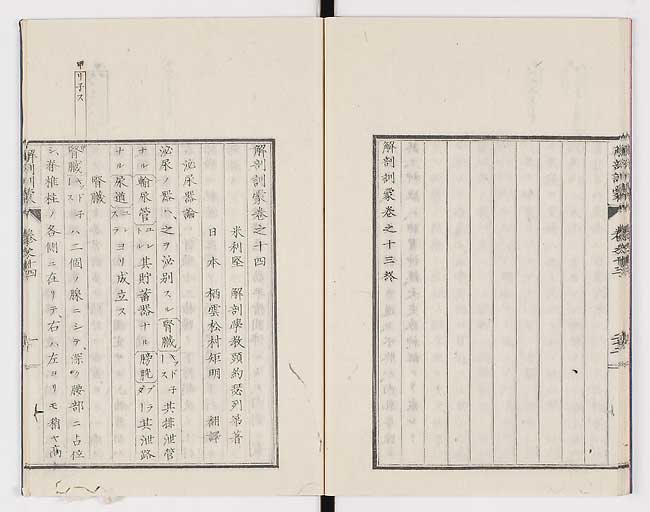 解剖訓蒙卷之十三終
解剖訓蒙卷之十四
米利堅 解剖學敎頭約瑟列第著
日本 栖雲松村矩明 翻譯
泌尿器論
泌尿ノ器ハ、之ヲ泌別スル腎臓 其排泄管
ナル輸尿管 其貯蓄器ナル膀胱 其泄路
ナル尿道 ヨリ成立ス
腎臓
腎臓 ハ二個ノ腺ニシテ、深ク腰部ニ占位
シ、脊椎柱ノ各側ニ在リテ、右ハ左ヨリモ稍ヤ高
解剖訓蒙